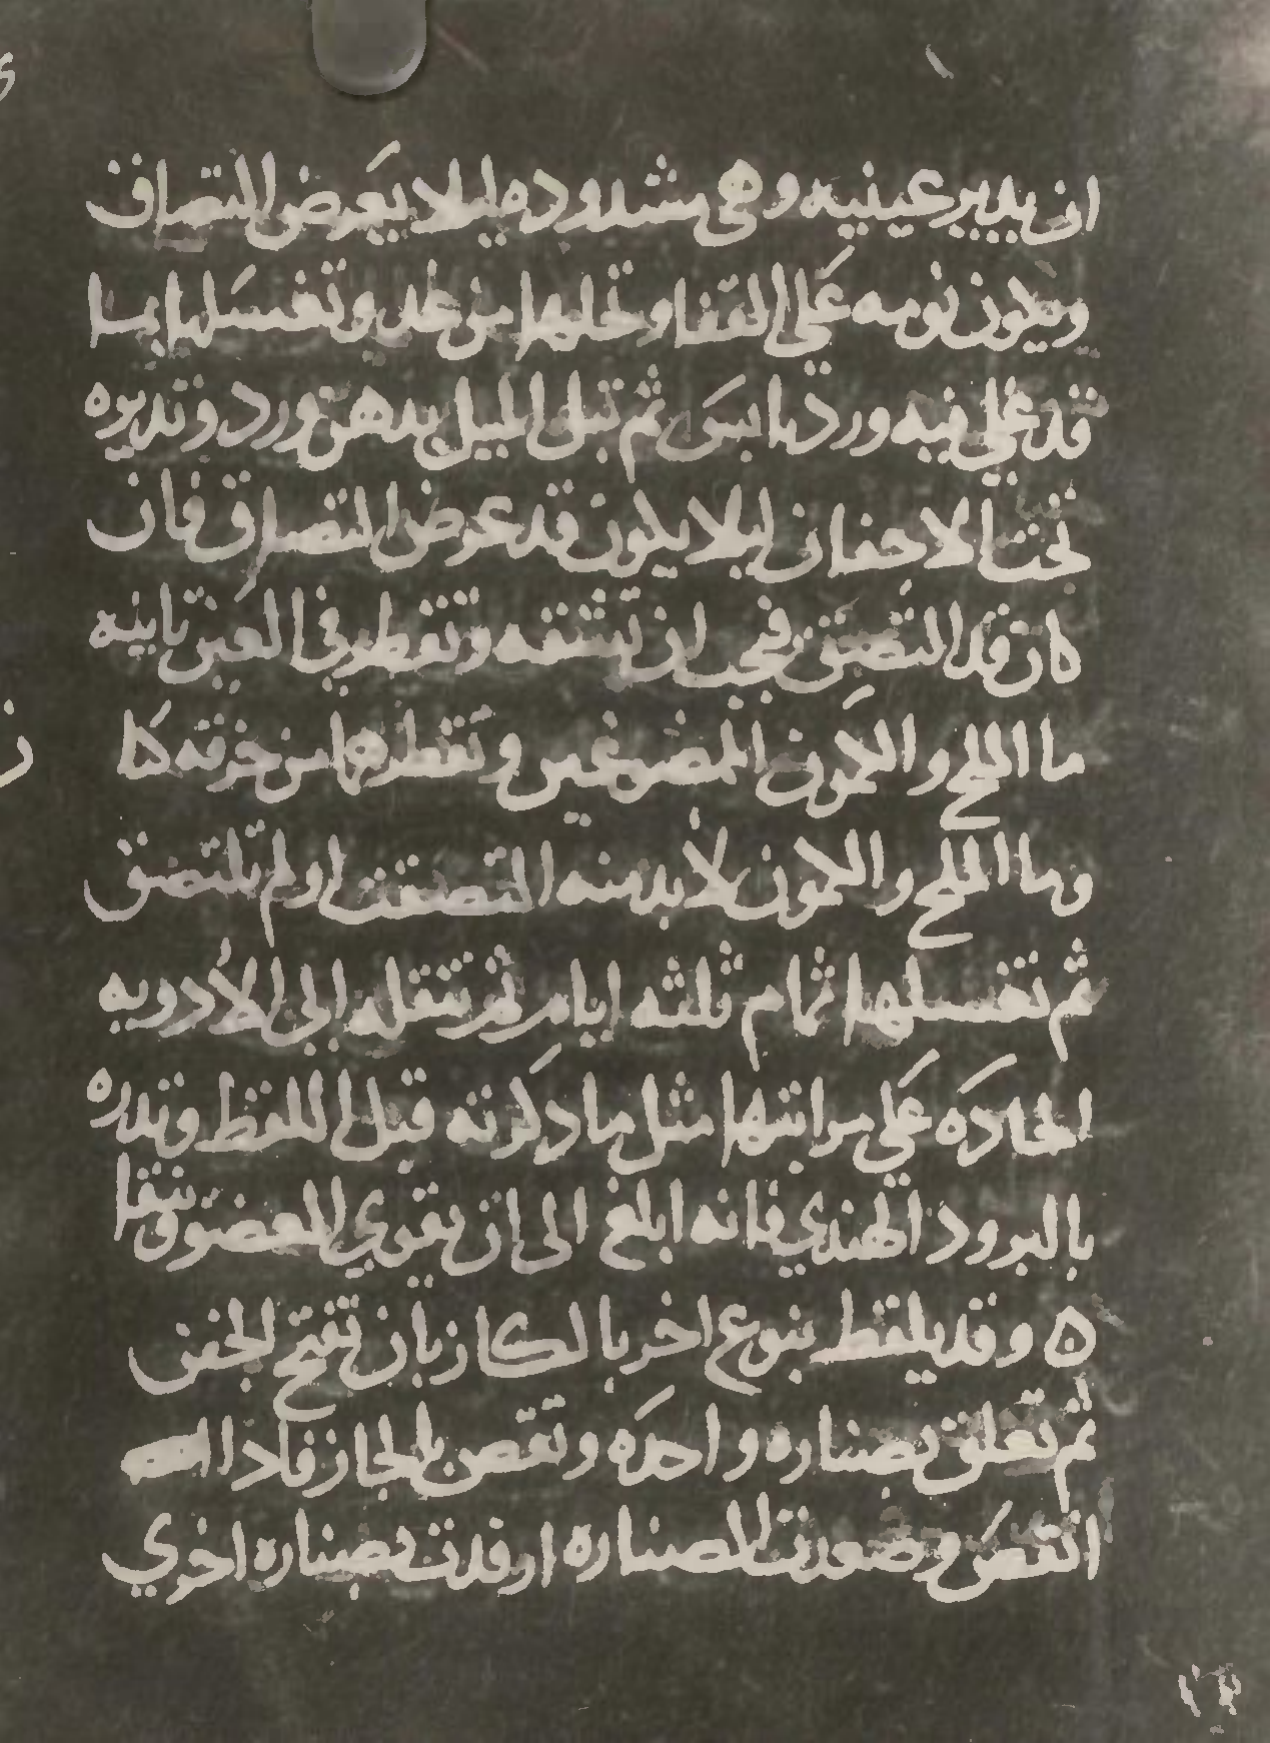 ان يدير عينيه وهي مشدوده ليلا يعرض التصاق
ويكون نومه على القفا وتحلها من غد وتغسلها بما
قد غلي فيه ورد يابس ثم تبل الميل بدهن ورد وتديره
تحت الاجفان ليلا يكون قد عرض التصاق فان
كان قد التصق فيجب ان تشقه وتقطر في العين ثانيه
ما الملح والكمون الممضوغين وتقطرها من خرقه كا
وما الملح والكمون لا بد منه التصقت او لم تلتصق
ثم تغسلها تمام ثلثه ايام ثم تنقله الى الادويه
الحاده على مراتبها مثل ما ذكرته قبل اللقظ وتدره
بالبرود الهندي فانه ابلغ الى ان يقوي العضو وينقا
ه وقد يلقط بنوع اخر بالكاز بان تفتح الجفن
ثم تعلق بصناره واحده وتقص بالجاز فاذا
انقص وصعدت الصناره ارفدت بصناره اخري